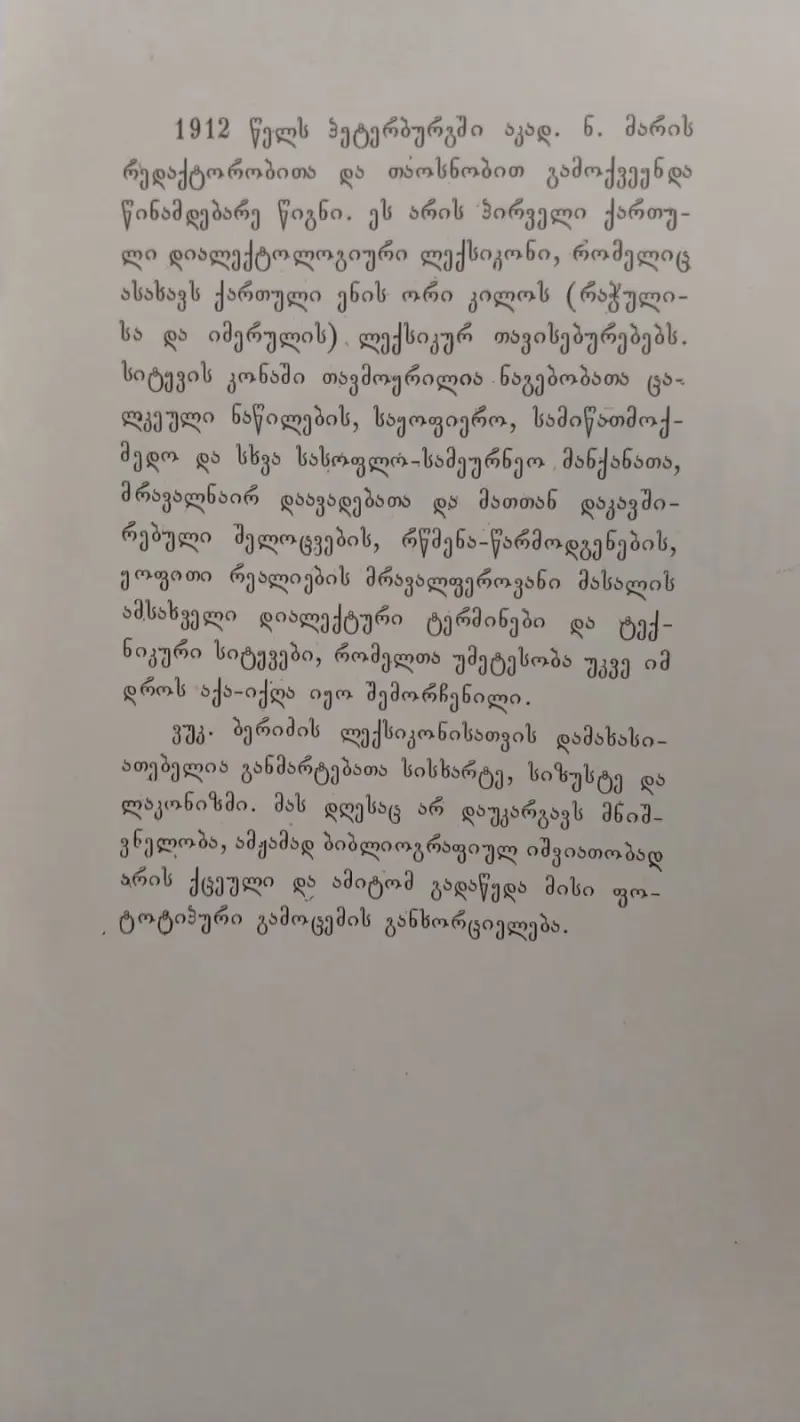 1912 წელს პეტერბურგში აკად. ნ. მარის
რედაქტორობითა და თაოსნობით გამოქვეყნდა
წინამდებარე წიგნი. ეს არის პირველი ქართუ-
ლი დიალექტოლოგიური ლექსიკონი, რომელიც
ასახავს ქართული ენის ორი კილოს (რაჭული-
სა და იმერულის) ლექსიკურ თავისებურებებს.
სიტყვის კონაში თავმოყრილია ნაგებობათა ცა-
ლკეული ნაწილების, საყოფიერო, სამიწათმოქ-
მედო და სხვა სასოფლო-სამეურნეო მანქანათა,
მრავალნაირ დაავადებათა და მათთან დაკავში-
რებული შელოცვების, რწმენა-წარმოდგენების,
ყოფითი რეალიების მრავალფეროვანი მასალის
ამსახველი დიალექტური ტერმინები და ტექ-
ნიკური სიტყვები, რომელთა უმეტესობა უკვე იმ
დროს აქა-იქღა იყო შემორჩენილი.
ვუკ. ბერიძის ლექსიკონისათვის დამახასი-
ათებელია განმარტებათა სისხარტე, სიზუსტე და
ლაკონიზმი. მას დღესაც არ დაუკარგავს მნიშ-
ვნელობა, ამჟამად ბიბლიოგრაფიულ იშვიათობად
არის ქცეული და ამიტომ გადაწყდა მისი ფო-
ტოტიპური გამოცემის განხორციელება.